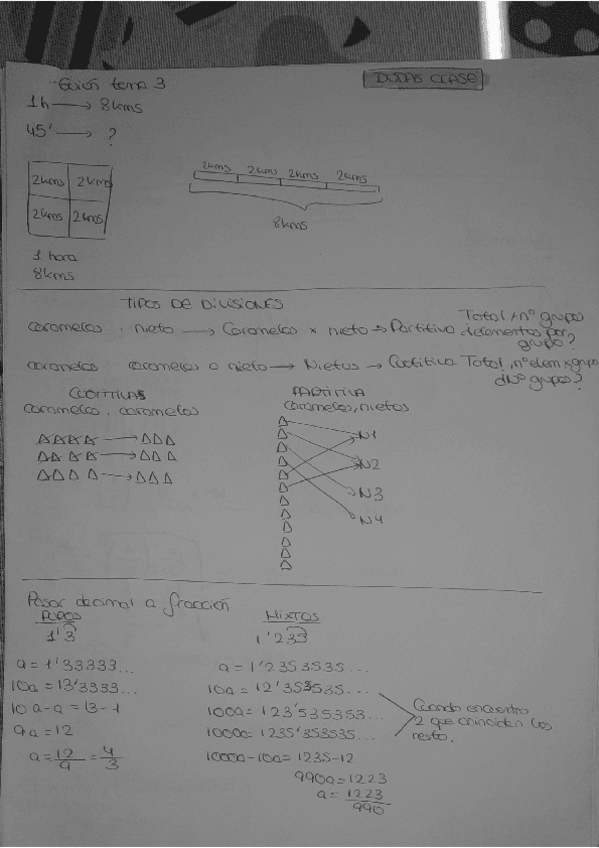 Guión tema 3
DUDAS CLASE
1h → 8kms
45' → ?
2kms 2kms
2kms 2kms
1 hora
8kms
2kms 2kms 2kms 2kms
8kms
TIPOS DE DIVISIONES
caramelos . nieto → Caramelos x nieto → Partitiva Total, nº grupo
delementos por
grupo?
caramelos caramelos o nieto → Nietos → Cuotitiva Total, nº elem x grupo
dNº grupos?
CUOTITIVAS
caramelos . caramelos
PARTITIVA
caramelos, nietos
N1
N2
N3
N4
Pasar decimal a fracción
PUROS
1'3
a = 1'33333...
10a = 13'3333...
10a - a = 13 - 1
9a = 12
a = 12/9 = 4/3
MIXTOS
1'233
a = 1'2353535...
10a = 12'353535...
100a = 123'535353...
1000a = 1235'353535...
1000a - 10a = 1235 - 12
990a = 1223
a = 1223/990
Cuando encuentro
2 que coinciden los
resto.